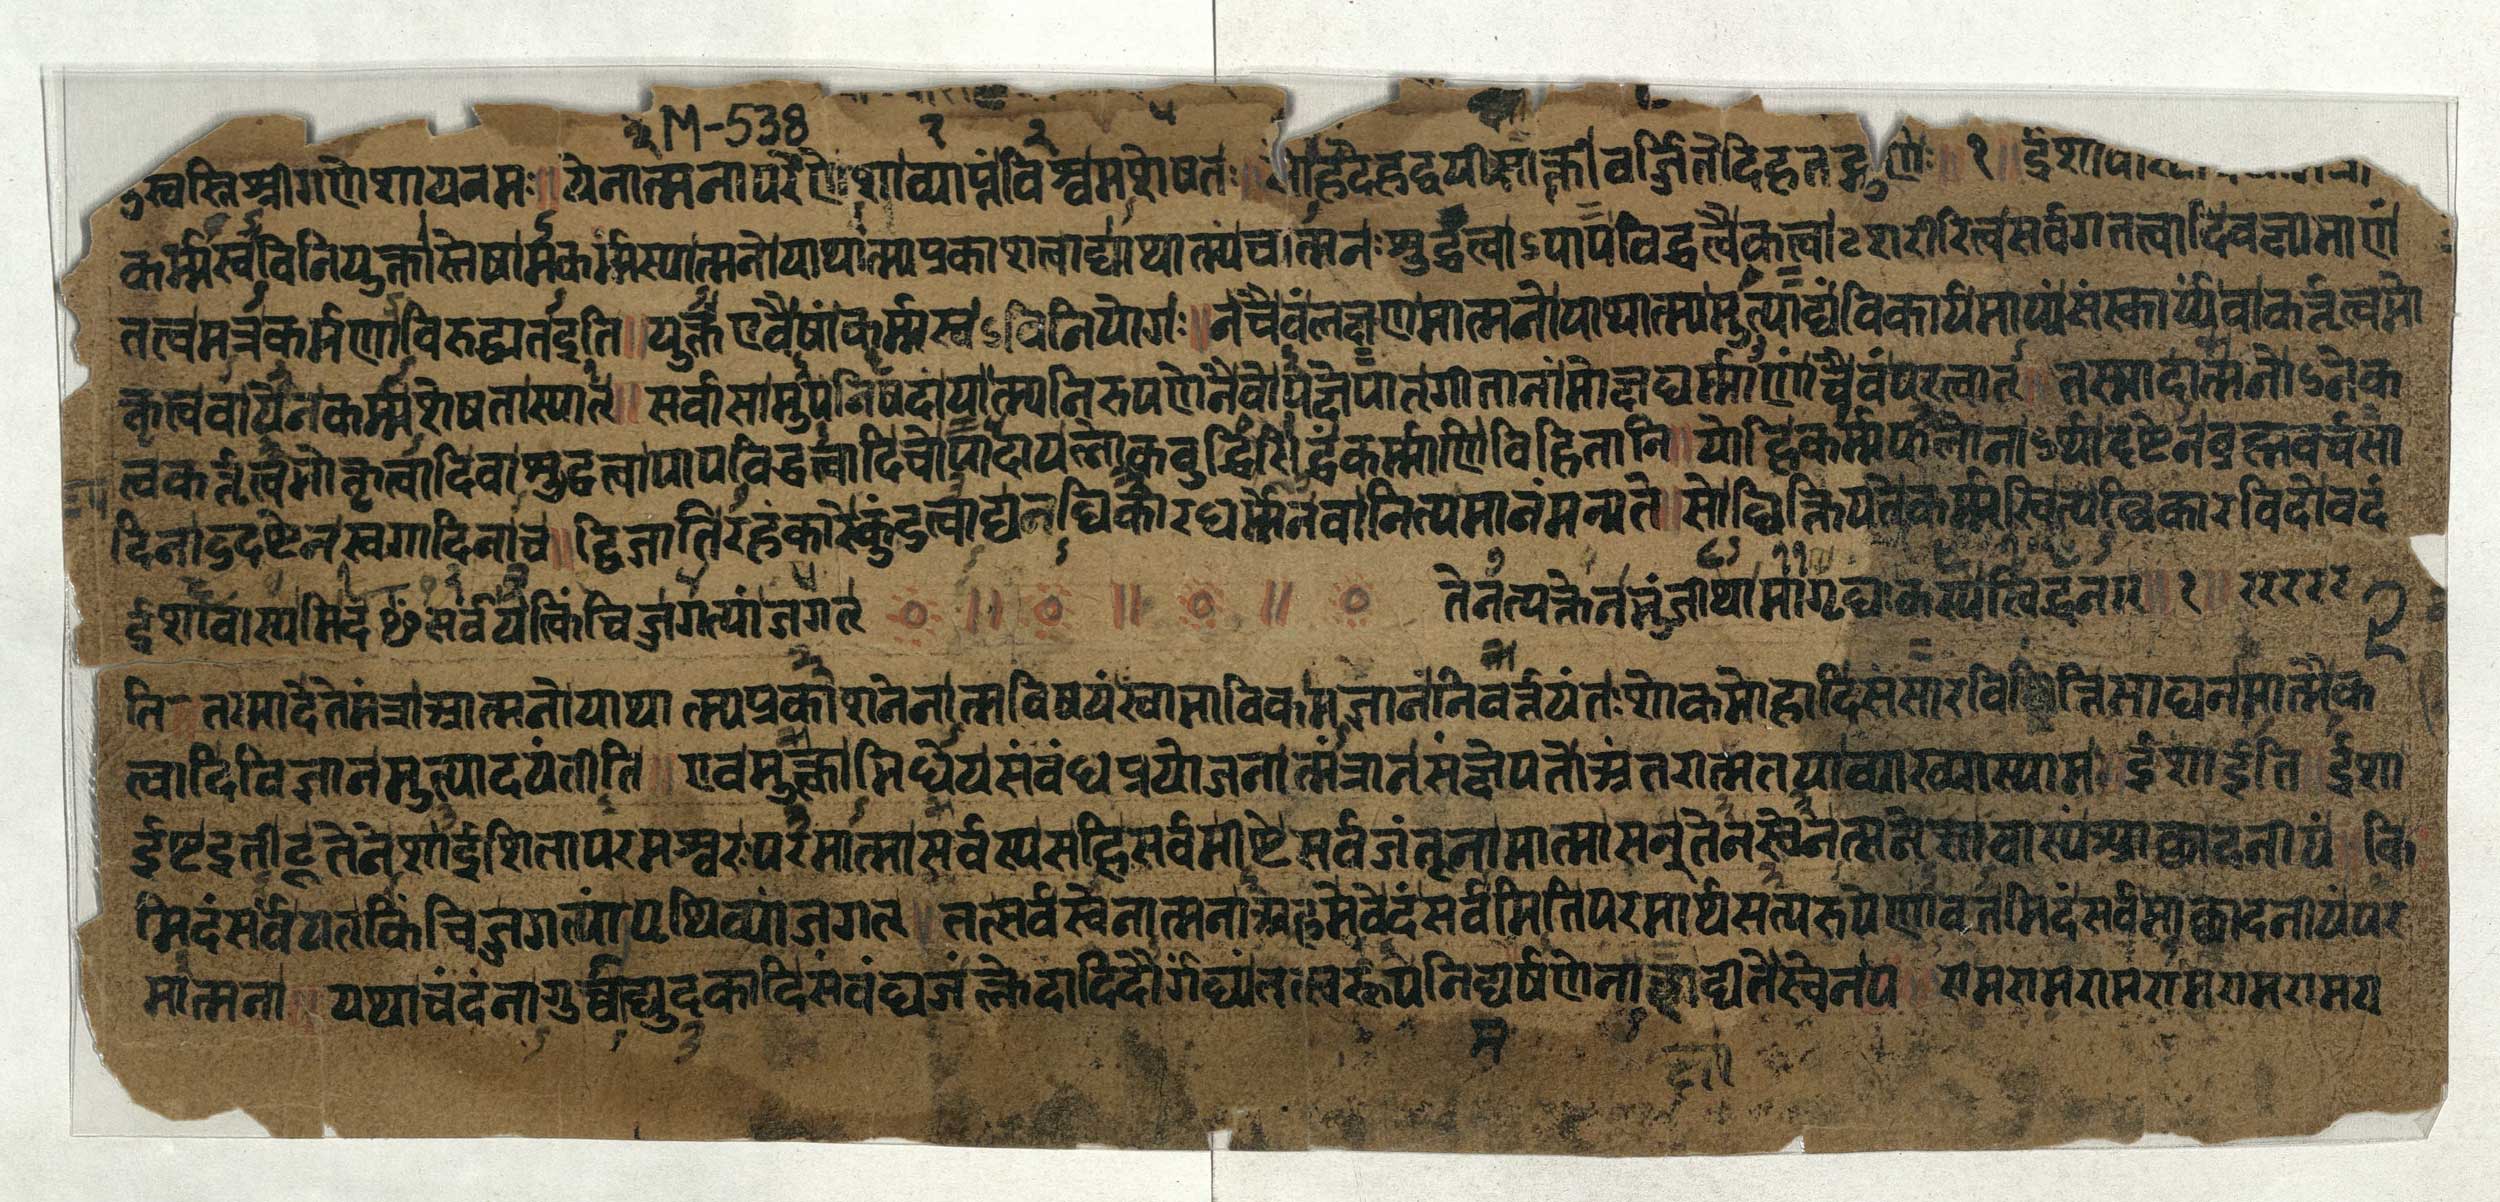 M-538
स्वस्ति श्रीगणेशाय नमः ॥ येनात्मनापरेणेशाव्याप्तंविश्वमशेषतः ॥ सोहंदेहद्वयीसाक्षीवर्जितोदेहतद्गुणैः ॥ १ ॥ ईशा
कर्म्मस्वविनियुक्तास्तेषामकर्म्मस्यात्मनोयाथात्म्यप्रकाशत्वाद्याथात्म्यंचात्मनःशुद्धत्वाऽपापविद्धत्वैकत्वाऽशरीरित्वसर्वगतत्वादिवक्ष्यमाणं
तत्त्वमत्रकर्मणोविरुद्ध्यतइति ॥ युक्तएवैषांकर्म्मस्वऽविनियोगः ॥ नचैवंलक्षणमात्मनोयाथात्म्यमुत्पाद्यंविकार्यमाप्यंसंस्कार्य्यंवाकर्त्तृत्वभो
क्तृत्वंवायेनकर्म्मशेषतास्यात् ॥ सर्वासामुपनिषदांयात्म्यनिरुपणेनैवोपक्षेपात्गीतानांमोक्षधर्म्माणांचैवंपरत्वात् ॥ तस्मादात्मनोऽनेक
त्वकर्त्तृत्वभोक्तृत्वादिवाशुद्धत्वापापविद्धत्वादिचोपादायलोकबुद्धिसिद्धंकर्म्माणिविहितानि ॥ योहिकर्म्मफलेनाऽर्थीदृष्टेनब्रह्मवर्चसा
दिनाऽदृष्टेनस्वर्गादिनाच ॥ द्विजातिरहंकाणकुंटत्वाद्यनधिकारधर्म्मेनवानित्यमानंमन्यते ॥ सोधिक्रियतेकर्म्मस्वित्यधिकारविदोवदं
ईशावास्यमिदꣳसर्वंयत्किंचिज्जगत्यांजगत् ० ॥ ० ॥ ० ॥ ० तेनत्यक्तेनभुंजीथामागृधःकस्यस्विद्धनम् ॥ १ ॥ ररररर
२
ति तस्मादेतेमंत्राआत्मनोयाथात्म्यप्रकाशनेनात्मविषयंस्वाभाविकमज्ञानंनिवर्त्तयंतःशोकमोहादिसंसारविच्छित्तिसाधनमात्मैक
त्वादिविज्ञानमुत्पादयंतीति ॥ एवमुक्ताभिधेयसंबंधप्रयोजनात्मंत्रानसंक्षेपतोअंतरात्मतयाव्याख्यास्यामः ॥ ईशाईति ॥ ईशा
ईष्टइतीट्तेनेशाईशितापरमश्वरःपरमात्मासर्वस्यसहिसर्वमीष्टेसर्वजंतूनामात्मासन्तेनस्वेनात्मनेशावास्यंआच्छादनीयं ॥ कि
मिदंसर्वंयत्किंचिज्जगत्यांपृथिव्यांजगत् ॥ तत्सर्वंस्वेनात्मनाअहमेवेदंसर्वमितिपरमार्थसत्यरुपेणावनमिदंसर्वमाच्छादनीयंपर
मात्मना ॥ यथाचंदनागुर्वाद्युदकादिसंबंधजंक्लेदादिदौर्गंध्यंतत्स्वरूपनिघर्षणेनाच्छाद्यतेस्वेनप ॥ रामरामरामरामरामरामरा